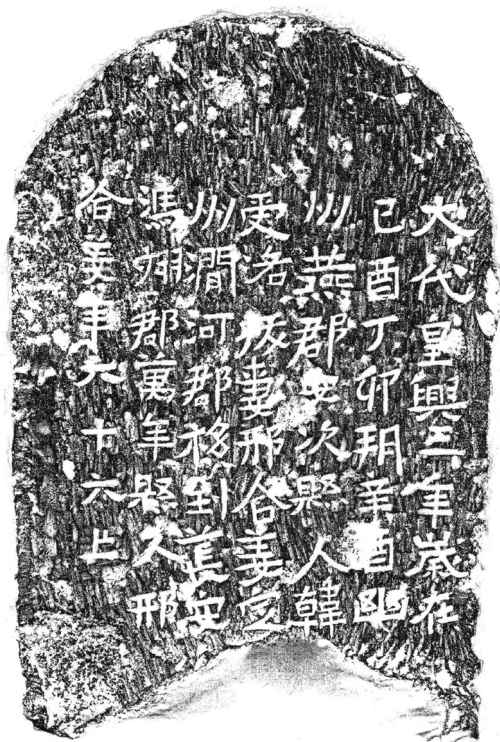 大代皇興三年歲在
己酉丁卯朔辛酉幽
州燕郡安次縣人韓
受洛拔妻邢合姜定
州澗河郡移到長安
馮翊郡萬年縣人邢
合姜年六十六亡